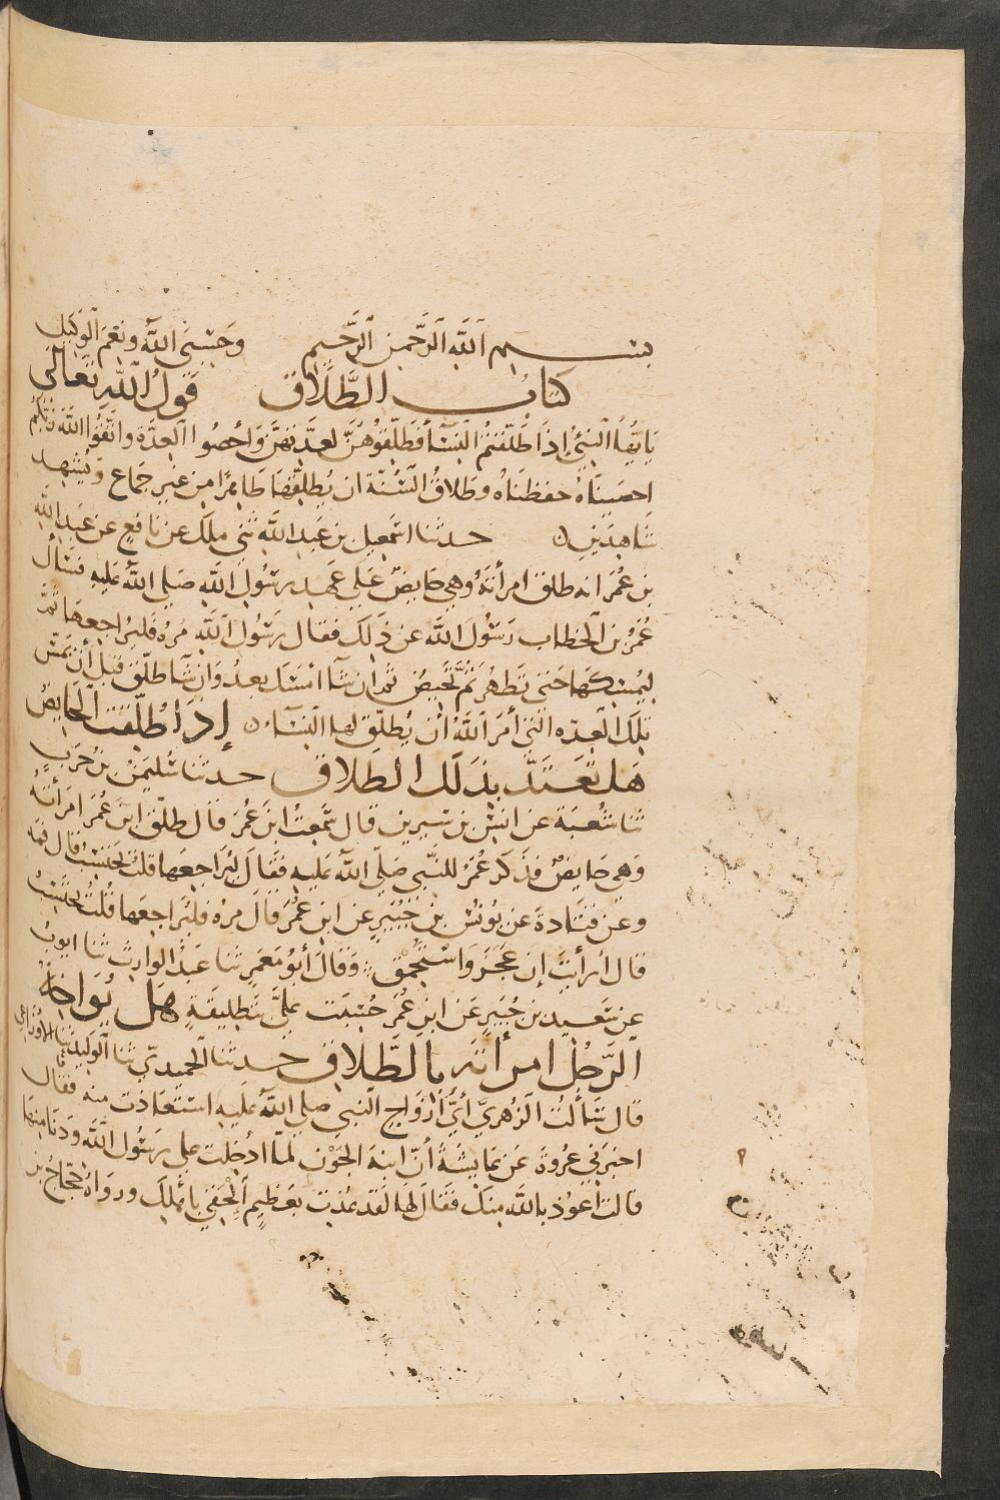 بسم الله الرحمن الرحيم وحسبي الله ونعم الوكيل
كتاب الطلاق قول الله تعالى
يَا ايها النبي إذا طلقتم النسآ فطلقوهن لعدتهن وأحصوا العدة واتقوا الله ربكم
احصيناه حفظناه وطلاق السنة ان يطلقها طاهرا من غير جماع ويشهد
شاهدين حدثنا اسمعيل بن عبد الله ثني ملك عن نافع عن عبد الله
بن عمر انه طلق امرأته وهي حايض على عهد رسول الله صلى الله عليه فسأل
عمر بن الخطاب رسول الله عن ذلك فقال رسول الله مره فليراجعها ثم
ليمسكها حتى تطهر ثم تحيض ثم ان شآ امسك بعد وان شآ طلق قبل أن يمس
فتلك العدة التي أمر الله أن يطلق لها النسآء إذا طلقت الحايض
هل تعتد بذلك الطلاق حدثنا سليمن بن حرب
ثنا شعبة عن انس بن سيرين قال سمعت ابن عمر قال طلق ابن عمر امرأته
وهي حايض فذكر عمر للنبي صلى الله عليه فقال ليراجعها قلت تحتسب قال فمه
وعن قتادة عن يونس بن جبير عن ابن عمر قال مره فليراجعها قلت تحتسب
قال أرأيت إن عجز واستحمق وقال أبو معمر ثنا عبد الوارث ثنا ايوب
عن سعيد بن جبير عن ابن عمر حسبت علي بتطليقة هل يواجه
الرجل امرأته بالطلاق حدثنا الحميدي ثنا الوليد ثنا الأوزاعي
قال سألت الزهري أي أزواج النبي صلى الله عليه استعاذت منه فقال
اخبرني عروة عن عايشة أن ابنة الجون لما ادخلت على رسول الله ودنا منها
قالت أعوذ بالله منك فقال لها لقد عذت بعظيم الحقي باهلك ورواه حجاج بن